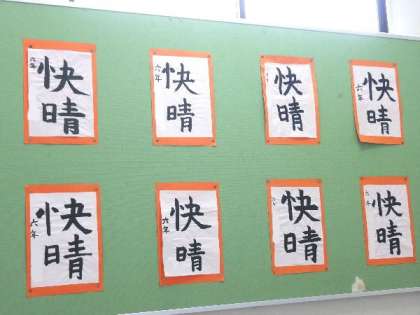 快晴
六年
快晴
六年
快晴
快晴
六年
快晴
六年
快晴
六年
快晴
快晴
六年